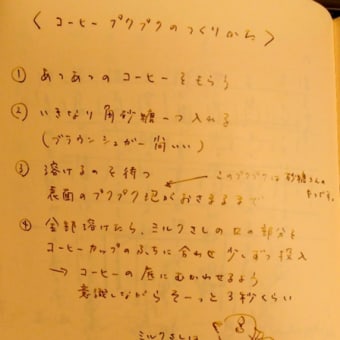 〈 コーヒー プクプクのつくりかた 〉
① あつあつの コーヒーをもらう
② いきなり 角砂糖一つ入れる
(ブラウンシュガー
③ 溶けるのを待つ
このプクプクは 砂糖さんの
表面のプクプク泡がおさまるまで
④ 全部溶けたら、ミルクさしの 口の部分を
コーヒーカップのふちに合わせ 少しずつ投入
→ コーヒーの 底にむかわせるよう
意識しながら そーっと 3秒くらい
ミルクさしは